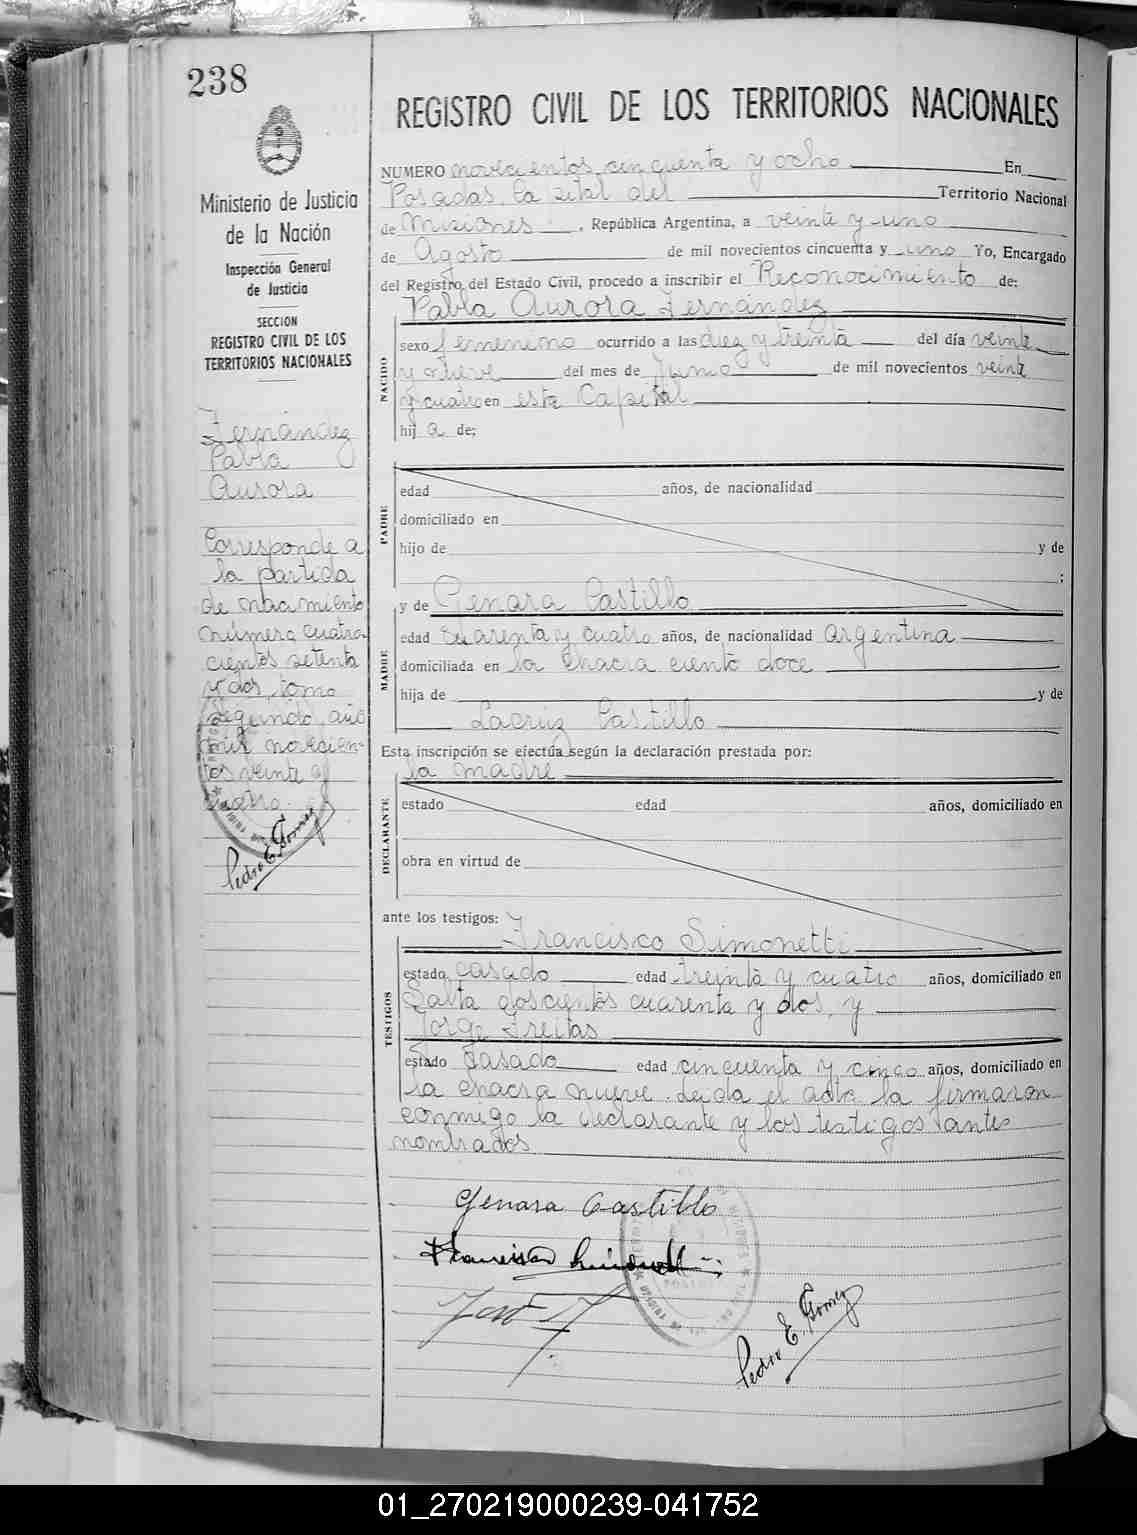 238
Ministerio de Justicia
de la Nación
Inspección General
de Justicia
SECCION
REGISTRO CIVIL DE LOS
TERRITORIOS NACIONALES
Fernández
Pabla
Aurora
Corresponde a
la partida
de nacimiento
número cuatro
cientos setenta
y dos, tomo
segundo, año
mil novecien-
tos veinte y
cuatro.
Pedro E. Gomez
REGISTRO CIVIL DE LOS TERRITORIOS NACIONALES
NUMERO novecientos cincuenta y ocho En
Posadas, la del Territorio Nacional
de Misiones, República Argentina, a veinte y uno
de Agosto de mil novecientos cincuenta y uno Yo, Encargado
del Registro del Estado Civil, procedo a inscribir el Reconocimiento de:
Pabla Aurora Fernández
NACIDO
sexo femenino ocurrido a las diez y treinta del día veinte
y nueve del mes de Junio de mil novecientos veinte
y cuatro en esta Capital
hij a de;
PADRE
edad años, de nacionalidad
domiciliado en
hijo de y de
;
y de Genara Castillo
MADRE
edad cuarenta y cuatro años, de nacionalidad argentina
domiciliada en la chacra ciento doce
hija de y de
Lacruz Castillo
Esta inscripción se efectúa según la declaración prestada por:
la madre
DECLARANTE
estado edad años, domiciliado en
obra en virtud de
ante los testigos: Francisco Simonetti
TESTIGOS
estado casado edad treinta y cuatro años, domiciliado en
Salta doscientos cuarenta y dos, y
Jorge Freitas
estado casado edad cincuenta y cinco años, domiciliado en
la chacra nueve. Leida el acta la firmaron
conmigo la declarante y los testigos antes
nombrados
Genara Castillo
Pedro E. Gomez
01_270219000239-041752